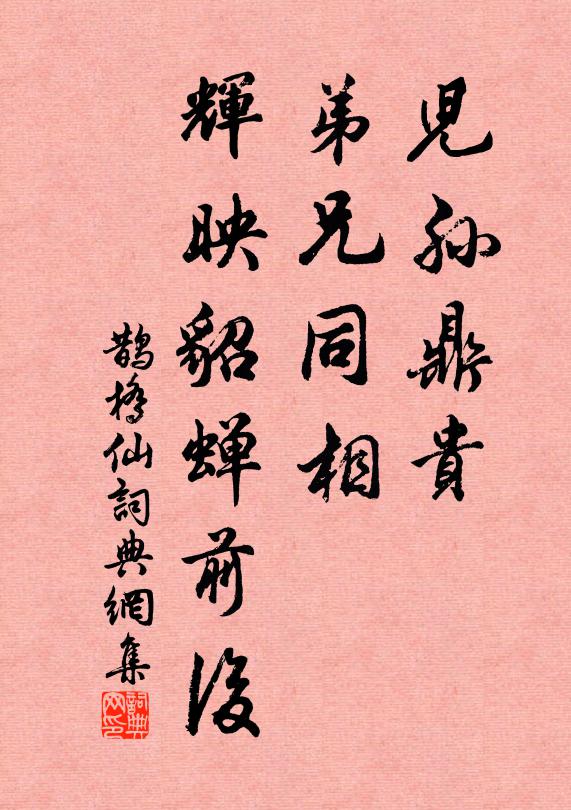 兒孫鼎貴
弟兄同相
輝映貂蟬前後
鵲橋仙詞典網集
詞典網印